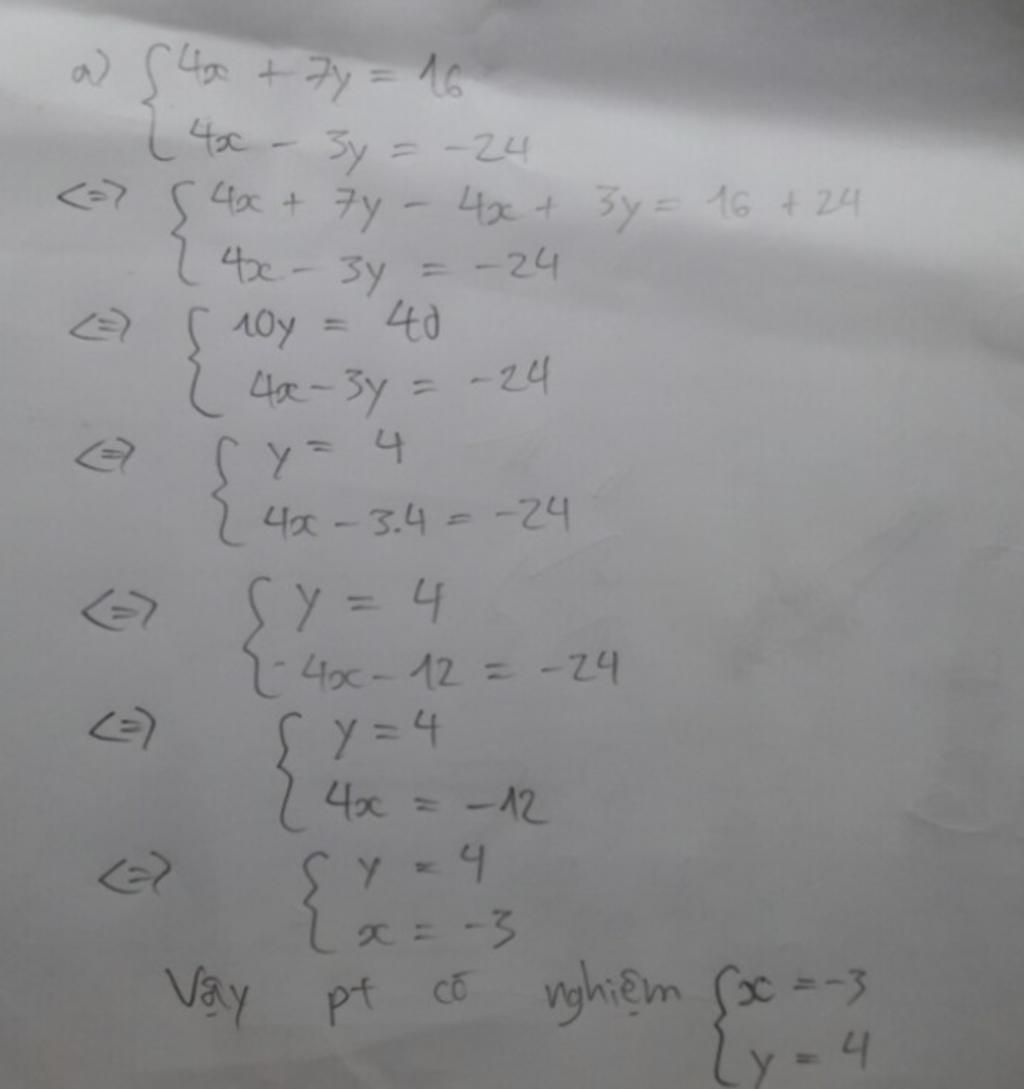 a) { 4x + 7y = 16
4x - 3y = -24
<=> { 4x + 7y - 4x + 3y = 16 + 24
4x - 3y = -24
<=> { 10y = 40
4x - 3y = -24
<=> { y = 4
4x - 3.4 = -24
<=> { y = 4
4x - 12 = -24
<=> { y = 4
4x = -12
<=> { y = 4
x = -3
Vậy pt có nghiệm { x = -3
y = 4